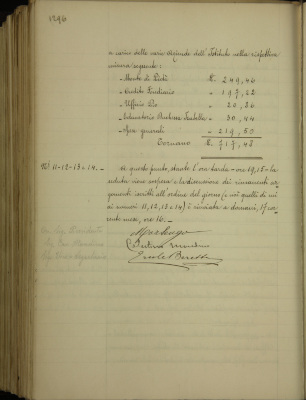 1296
a carico delle varie Aziende dell'Istituto nella rispettiva
misura seguente:
- Monte di Pietà L. 249,46
- Credito Fondiario - 197,22
- Ufficio Pio - 20,36
- Educatorio Duchessa Isabella - 30,44
- Spese generali - 219,50
Tornano L. 717,48
N.i 11-12-13 e 14. -
A questo punto, stante l'ora tarda - ore 19,15 - la
seduta viene sospesa e la discussione dei rimanenti ar-
gomenti iscritti all'ordine del giorno (e cioè quelli di cui
ai numeri 11, 12, 13 e 14) è rinviata a domani, 17 cor-
rente mese, ore 16. -